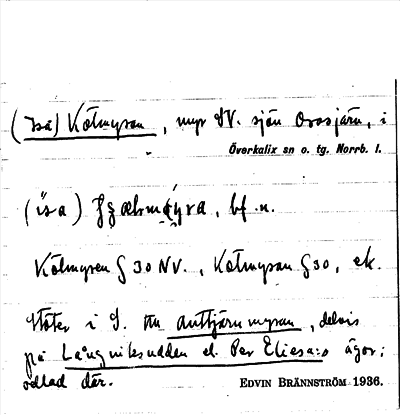 (Isa) Kölmyran, myr NV. sjön Orrsjärv, i
Överkalix sn o. tg. Norrb. l.
(isa) , bf. n.
Kölmyren § 30 NV., Kölmyran § 30, ek.
Stöter i S. till Anttjärnmyran, delvis
på Långviksudden el. Per Eliesa:s ägor;
odlad där. EDVIN BRÄNNSTRÖM 1936.